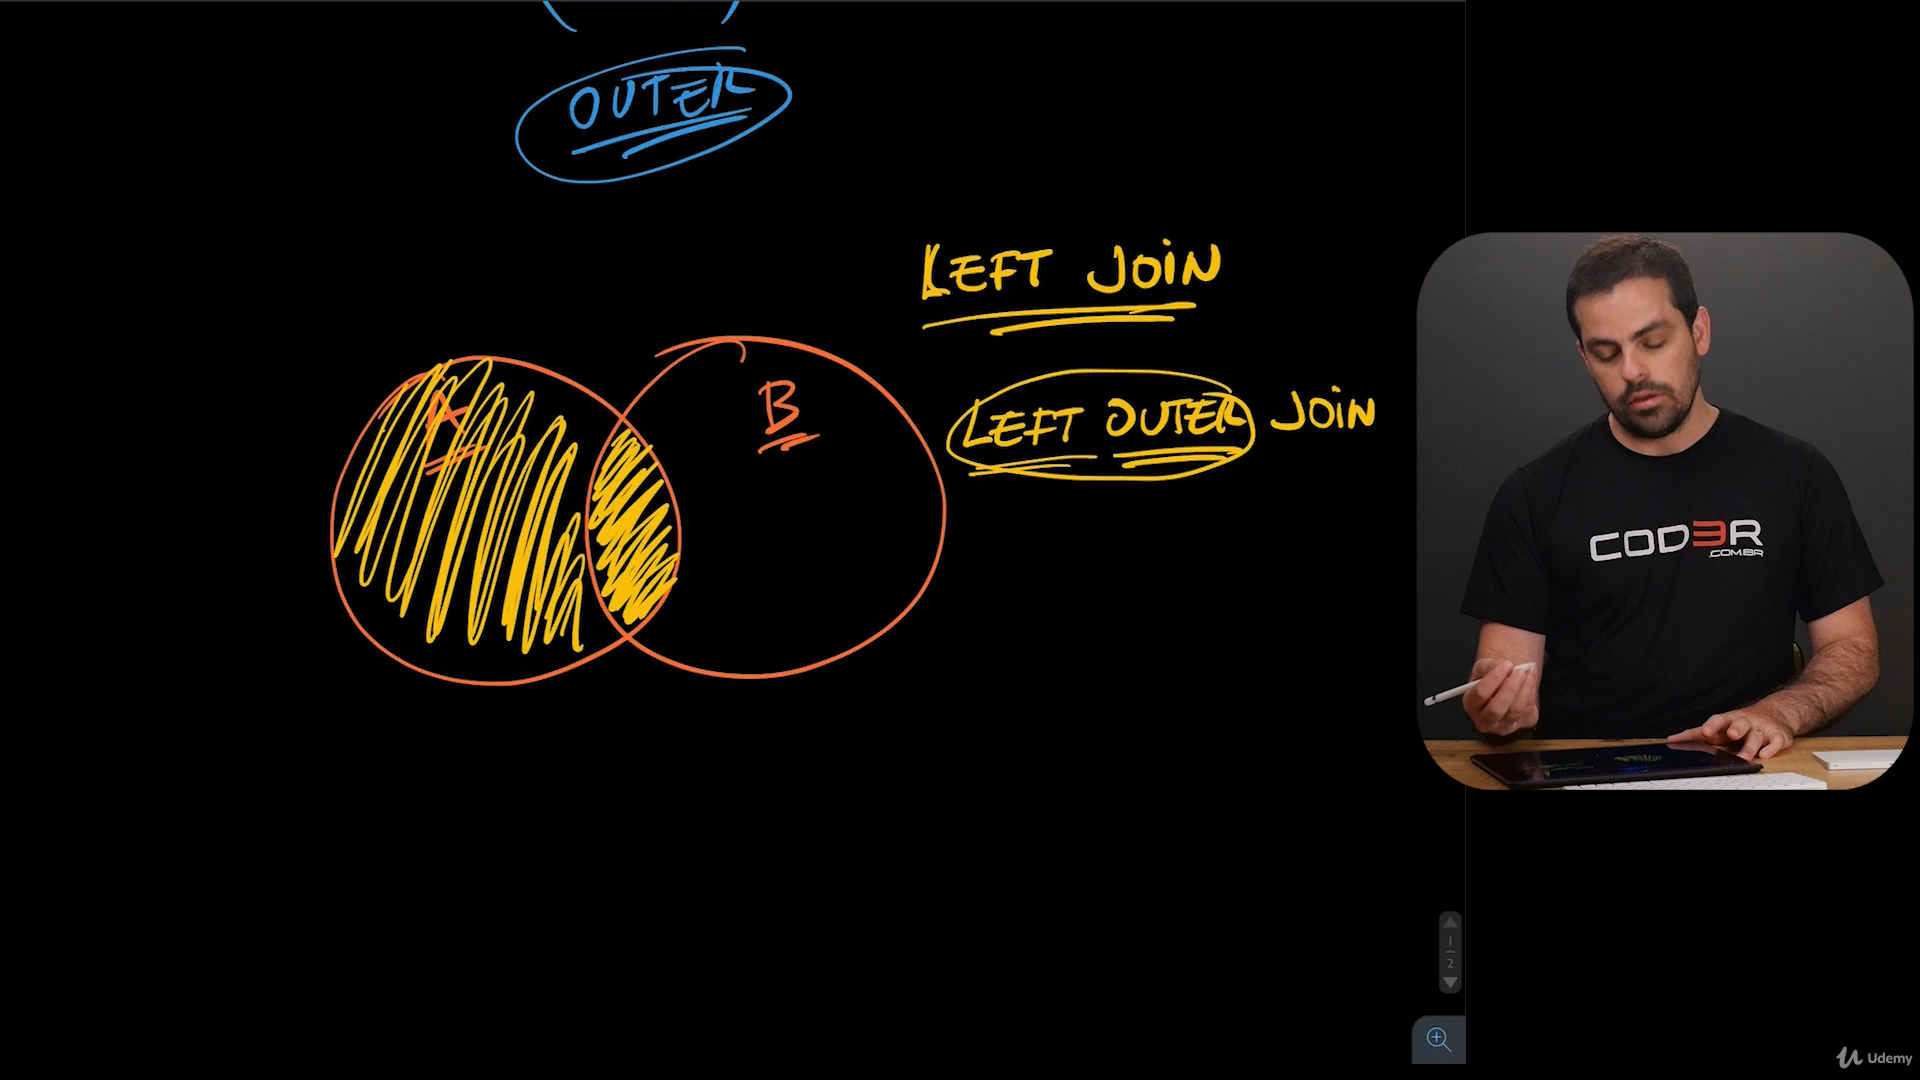 OUTER
LEFT JOIN
A
B
LEFT OUTER JOIN
COD3R
.COM.BR
1
2
Udemy